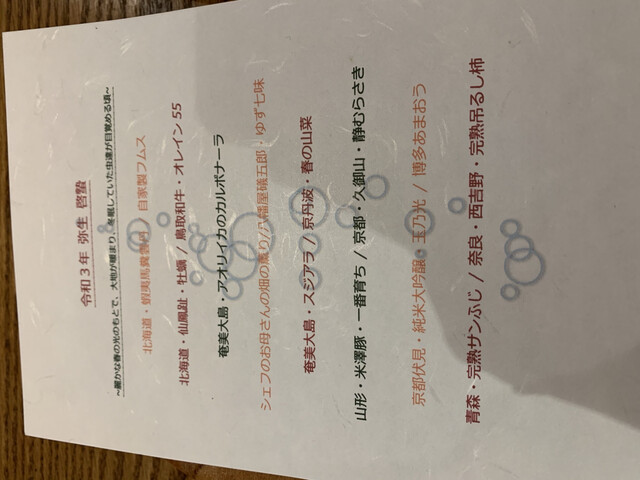 令和３年 弥生 啓蟄
~麗かな春の光のもとで、大地が暖まり、冬眠していた虫達が目覚める頃~
北海道・蝦夷馬糞雲丹 / 自家製フムス
北海道・仙鳳趾・牡蠣 / 鳥取和牛・オレイン 55
奄美大島・アオリイカのカルボナーラ
シェフのお母さんの畑の薫り/八幡屋礒五郎・ゆず七味
奄美大島・スジアラ / 京丹波・春の山菜
山形・米澤豚・一番育ち / 京都・久御山・静むらさき
京都伏見・純米大吟醸・玉乃光 / 博多あまおう
青森・完熟サンふじ / 奈良・西吉野・完熟吊るし柿